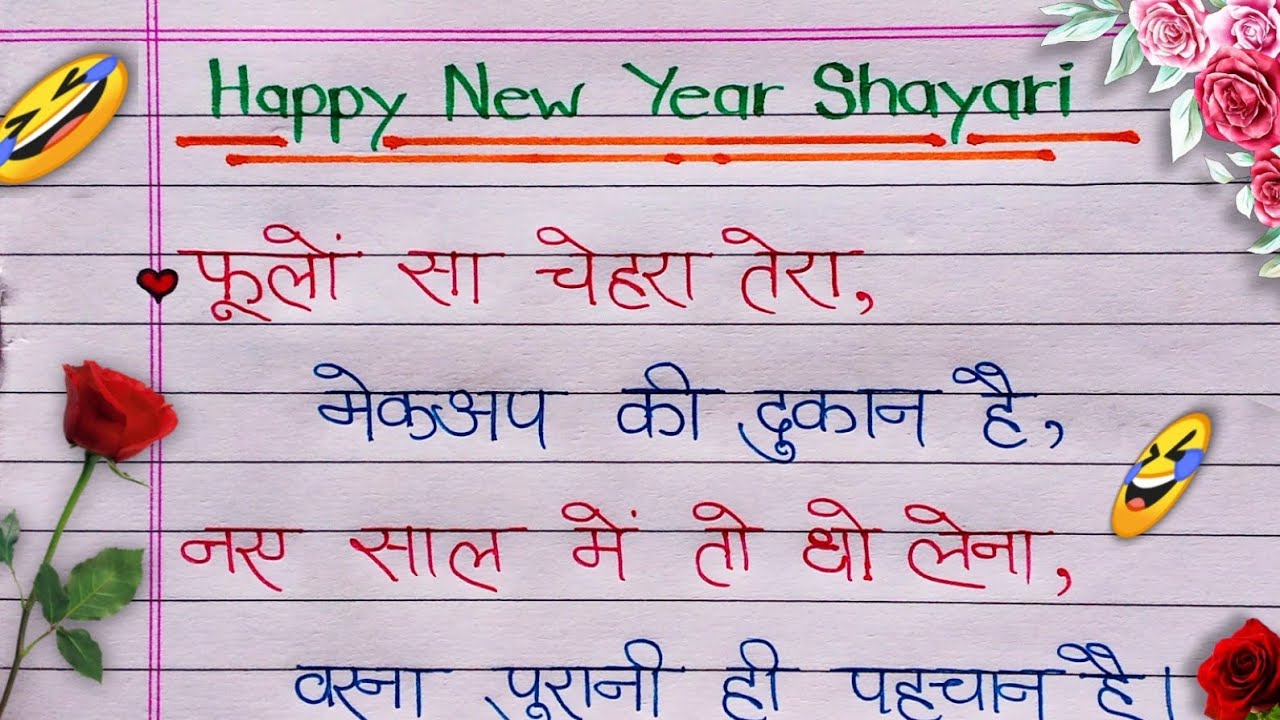 Happy New Year Shayari
फूलों सा चेहरा तेरा,
मेकअप की दुकान है,
नए साल में तो धो लेना,
वरना पूरानी ही पहचान है।